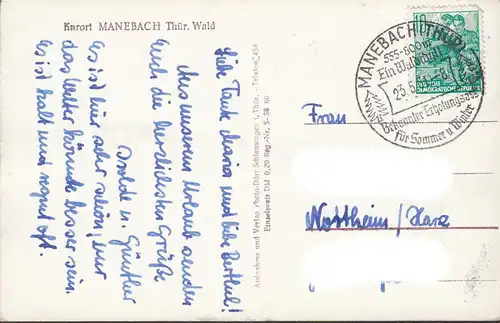 Kurort MANEBACH Thür. Wald
Liebe Tante Maria und liebe Berthel!
Aus unserem Urlaub senden
Euch die herzlichsten Grüße
Isolde u. Günther
Es ist hier sehr schön, nur
das Wetter könnte besser sein.
Es ist kalt und regnet oft.
Aufnahme und Verlag Photo-Dörr Schleusingen i. Thür. - Telefon 454
Einzelpreis DM 0,20 Reg.-Nr. S-38 60
MANEBACH (THÜR.
555-800m
Ein Waldidyll
23.5.
Bekannter Erholungsort
für Sommer u Winter
10
Frau
Nottheim/Harz